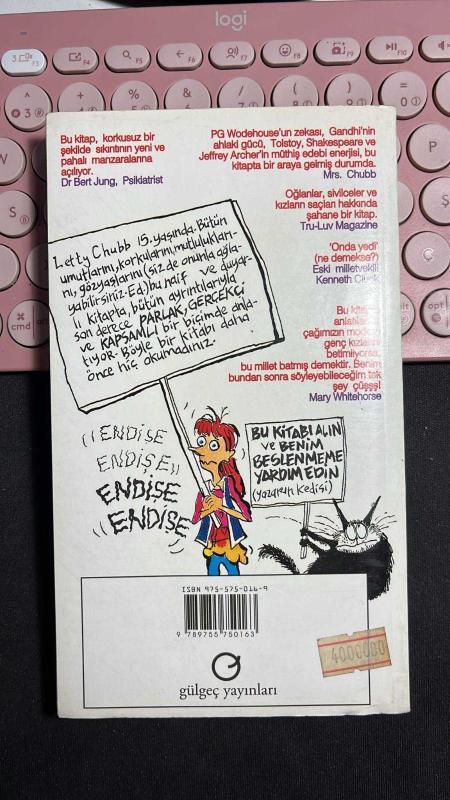 logi
Bu kitap, korkusuz bir
şekilde sıkıntının yeni ve
pahalı manzaralarına
açılıyor.
Dr Bert Jung, Psikiatrist
PG Wodehouse'un zekası, Gandhi'nin
ahlaki gücü, Tolstoy, Shakespeare ve
Jeffrey Archer'in müthiş edebi enerjisi, bu
kitapta bir araya gelmiş durumda.
Mrs. Chubb
Oğlanlar, sivilceler ve
kızların saçları hakkında
şahane bir kitap.
Tru-Luv Magazine
'Onda yedi'
(ne demekse?)
Eski milletvekili
Kenneth
Bu kitap
anlatılan
çağımızın
genç kızlarını
betimliyorsa,
bu millet batmış demektir. Benim
bundan sonra söyleyebileceğim tek
şey çüşşş!
Mary Whitehorse
Letty Chubb 15 yaşında. Bütün
umutlarını, korkularını, mutlulukları-
nı, gözyaşlarını (siz de onunla ağla-
yabilirsiniz-Ed.) bu naif ve duyar-
lı kitapta, bütün ayrıntılarıyla
son derece PARLAK, GERÇEKÇİ
ve KAPSAMLI bir biçimde anla-
tıyor. Böyle bir kitabı daha
önce hiç okumadınız.
ENDİŞE
ENDİŞE
ENDİŞE
ENDİŞE
BU KİTABI ALIN
ve BENİM
BESLENMEME
YARDIM EDİN
(yazarın kedisi)
ISBN 975-575-016-9
9 789755 750163
gülgeç yayınları
4000000